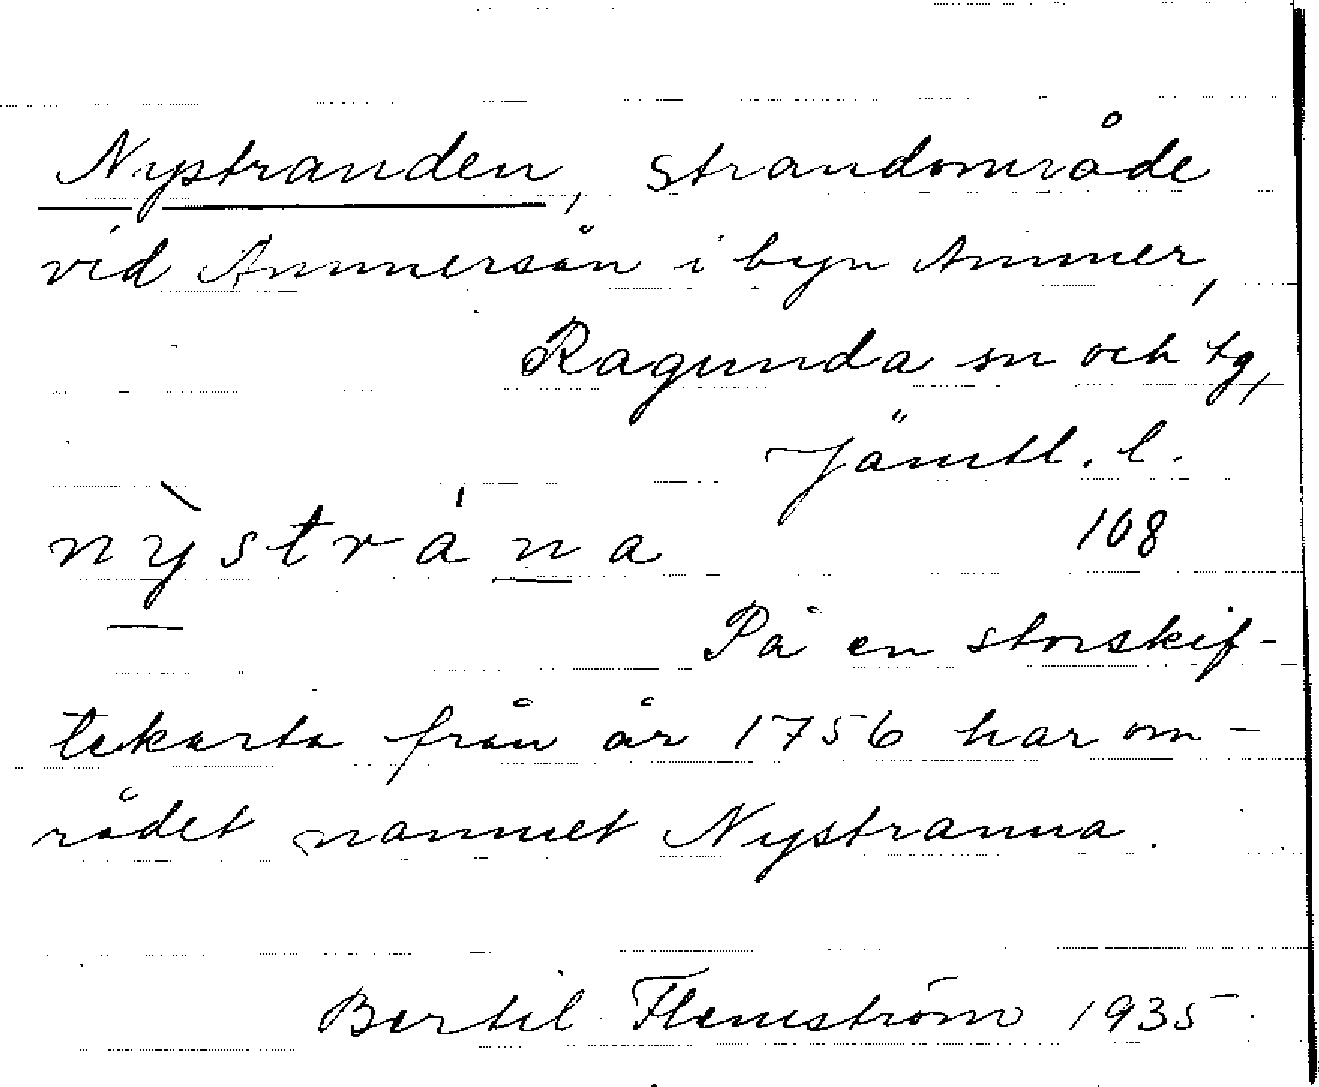 Nystranden, strandområde
vid Ammersån i byn Ammer,
Ragunda sn och tg,
Jämtl. l.
nỳstrána
108
På en storskif-
tekarta från år 1756 har om-
rådet namnet Nystranna.
Bertil Flemström 1935